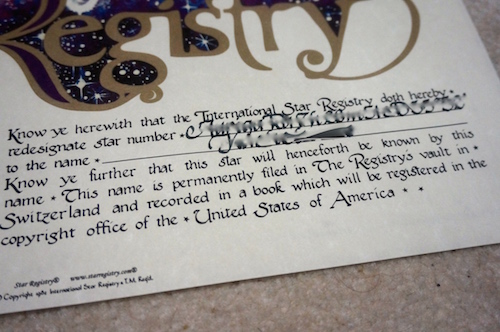 Registry
Know ye herewith that the International Star Registry doth hereby •
redesignate star number •
to the name •
Know ye further that this star will henceforth be known by this
name • This name is permanently filed in The Registry's vault in •
Switzerland and recorded in a book which will be registered in the
copyright office of the • United States of America • •
Star Registry® www.starregistry.com®
© Copyright 1982 International Star Registry • T.M. Reg'd.